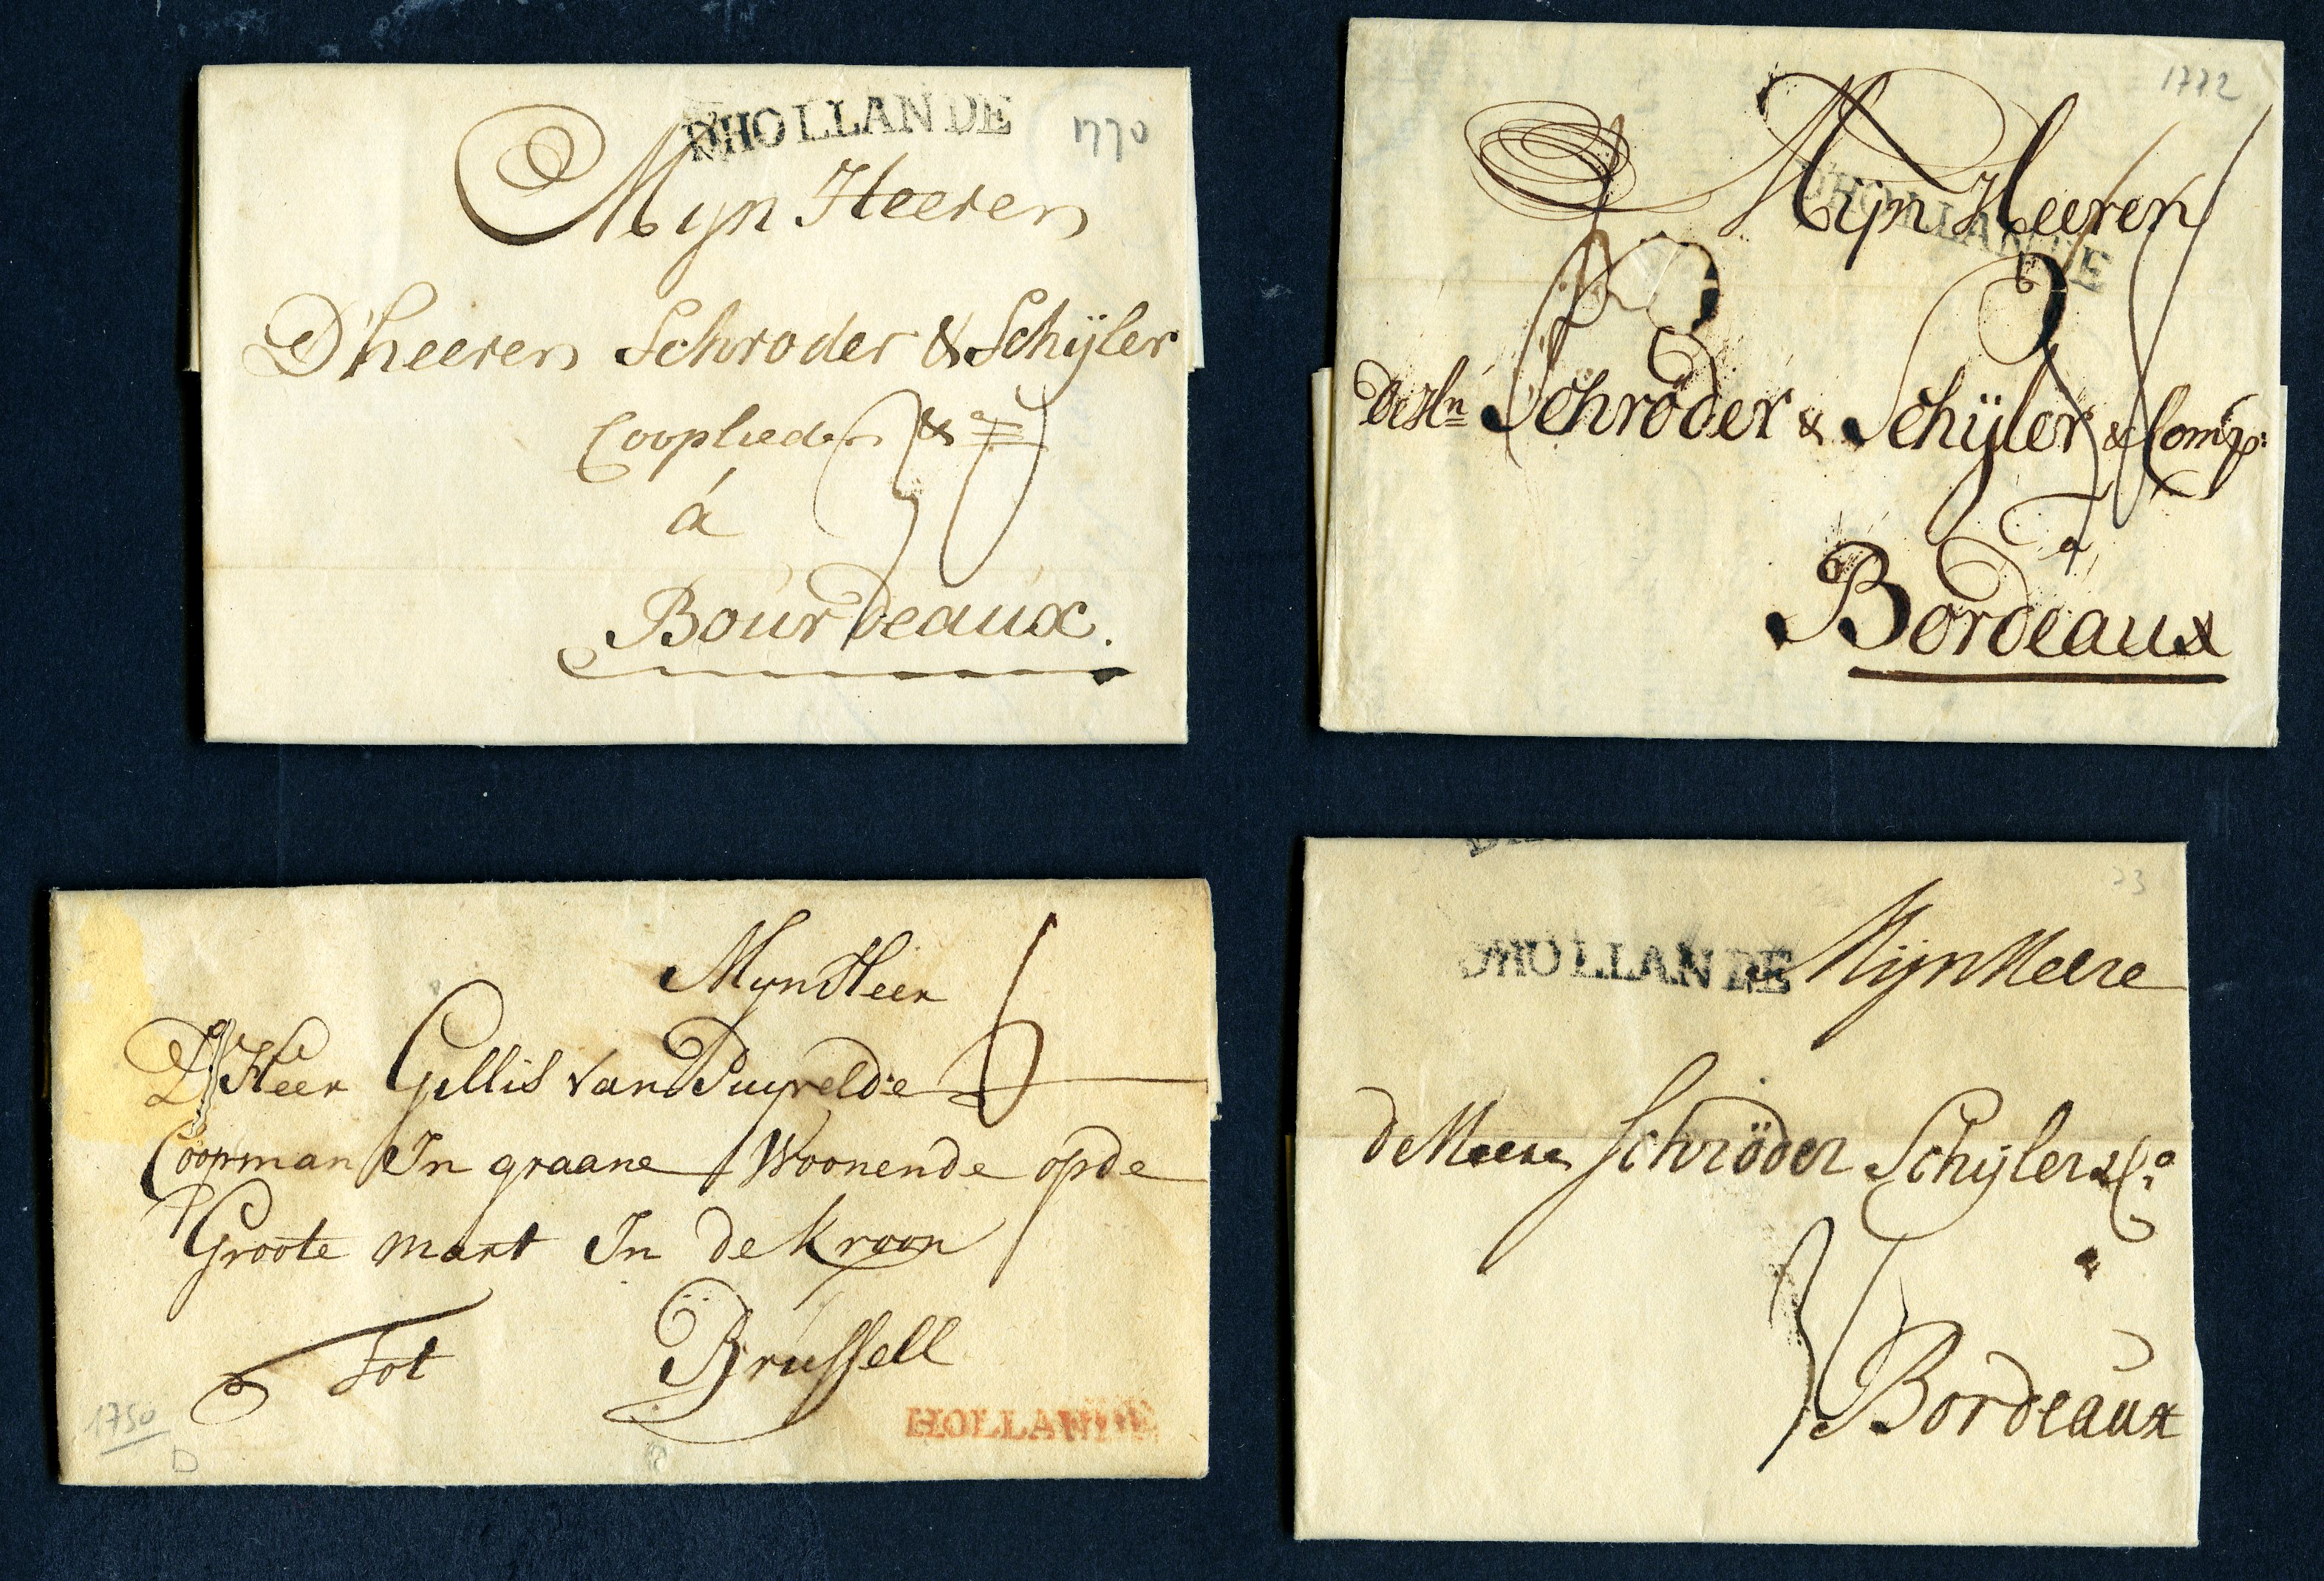 DHOLLANDE
1770
Mijn Heeren
D'heeren Schroder & Schijler
Cooplieden &a
á
Bourdeaux.
1772
Mijn Heeren
D'HOLLANDE
De Hn Schröder & Schijler & Comp:
a
Bordeaux
Mijn Heer
D'Heer Gillis Van Puyvelde
Coopman In graane Woonende op de
Groote mart In de kroon
Tot Brussell
1750
D
HOLLANDE
73
DHOLLANDE Mijn Heere
de Heere Schröder Schijler & Co:
a
Bordeaux